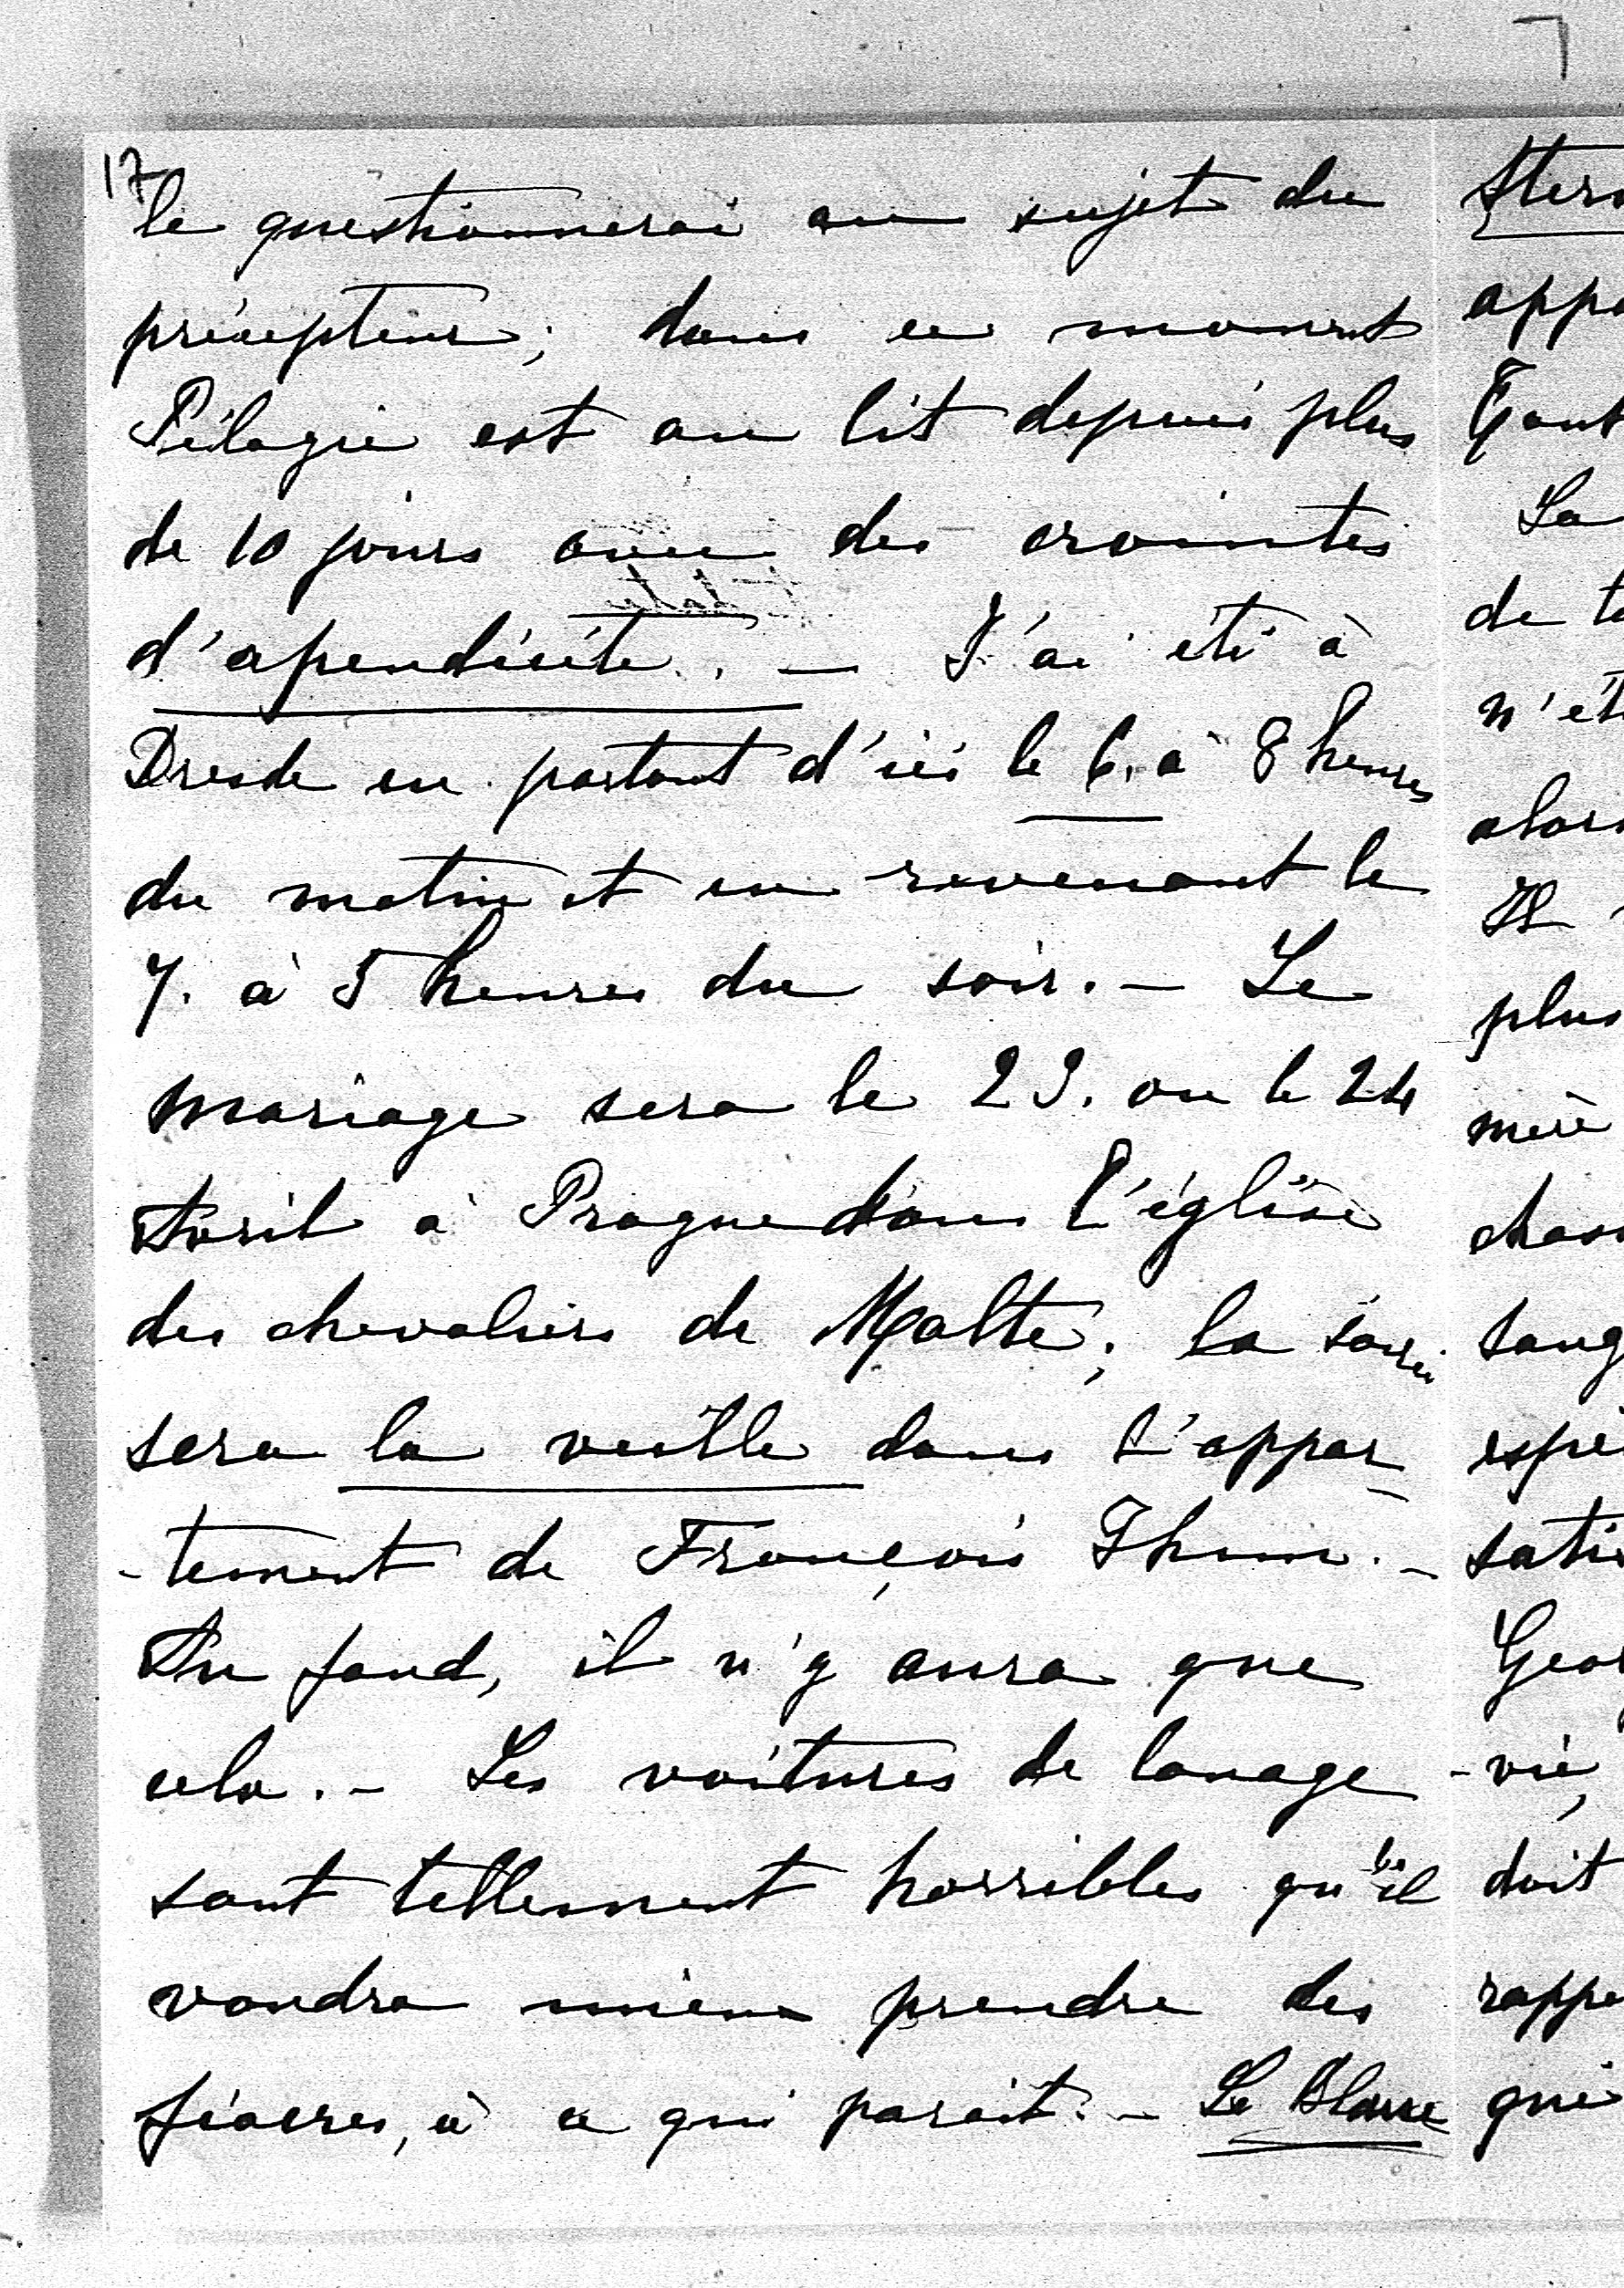 17
le questionnerai au sujet du
précepteur; dans ce moment
Pélagie est au lit depuis plus
de 10 jours avec des craintes
d'apendicite. — J'ai été à
Dresde en partant d'ici le 6. à 8 heures
du matin et en revenant le
7. à 5 heures du soir. — Le
mariage sera le 23. ou le 24
Avril à Prague dans l'église
des chevaliers de Malte; la soirée
sera la veille dans l'appar-
-tement de François Thun. —
Au fond, il n'y aura que
cela. — Les voitures de louage
sont tellement horribles qu'il
vaudra mieux prendre des
fiacres, à ce qui parait. — Le
Ster
appa
La
de t
n'ét
alors
Il
plus
mère
sang
espé
satis
Geor
-vie,
doit
rappe
qui